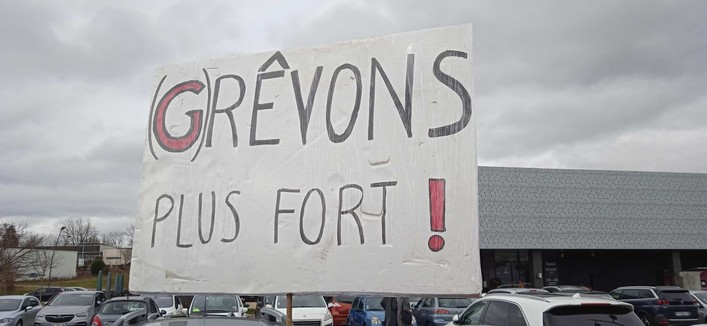 (G)RÊVONS
PLUS FORT !